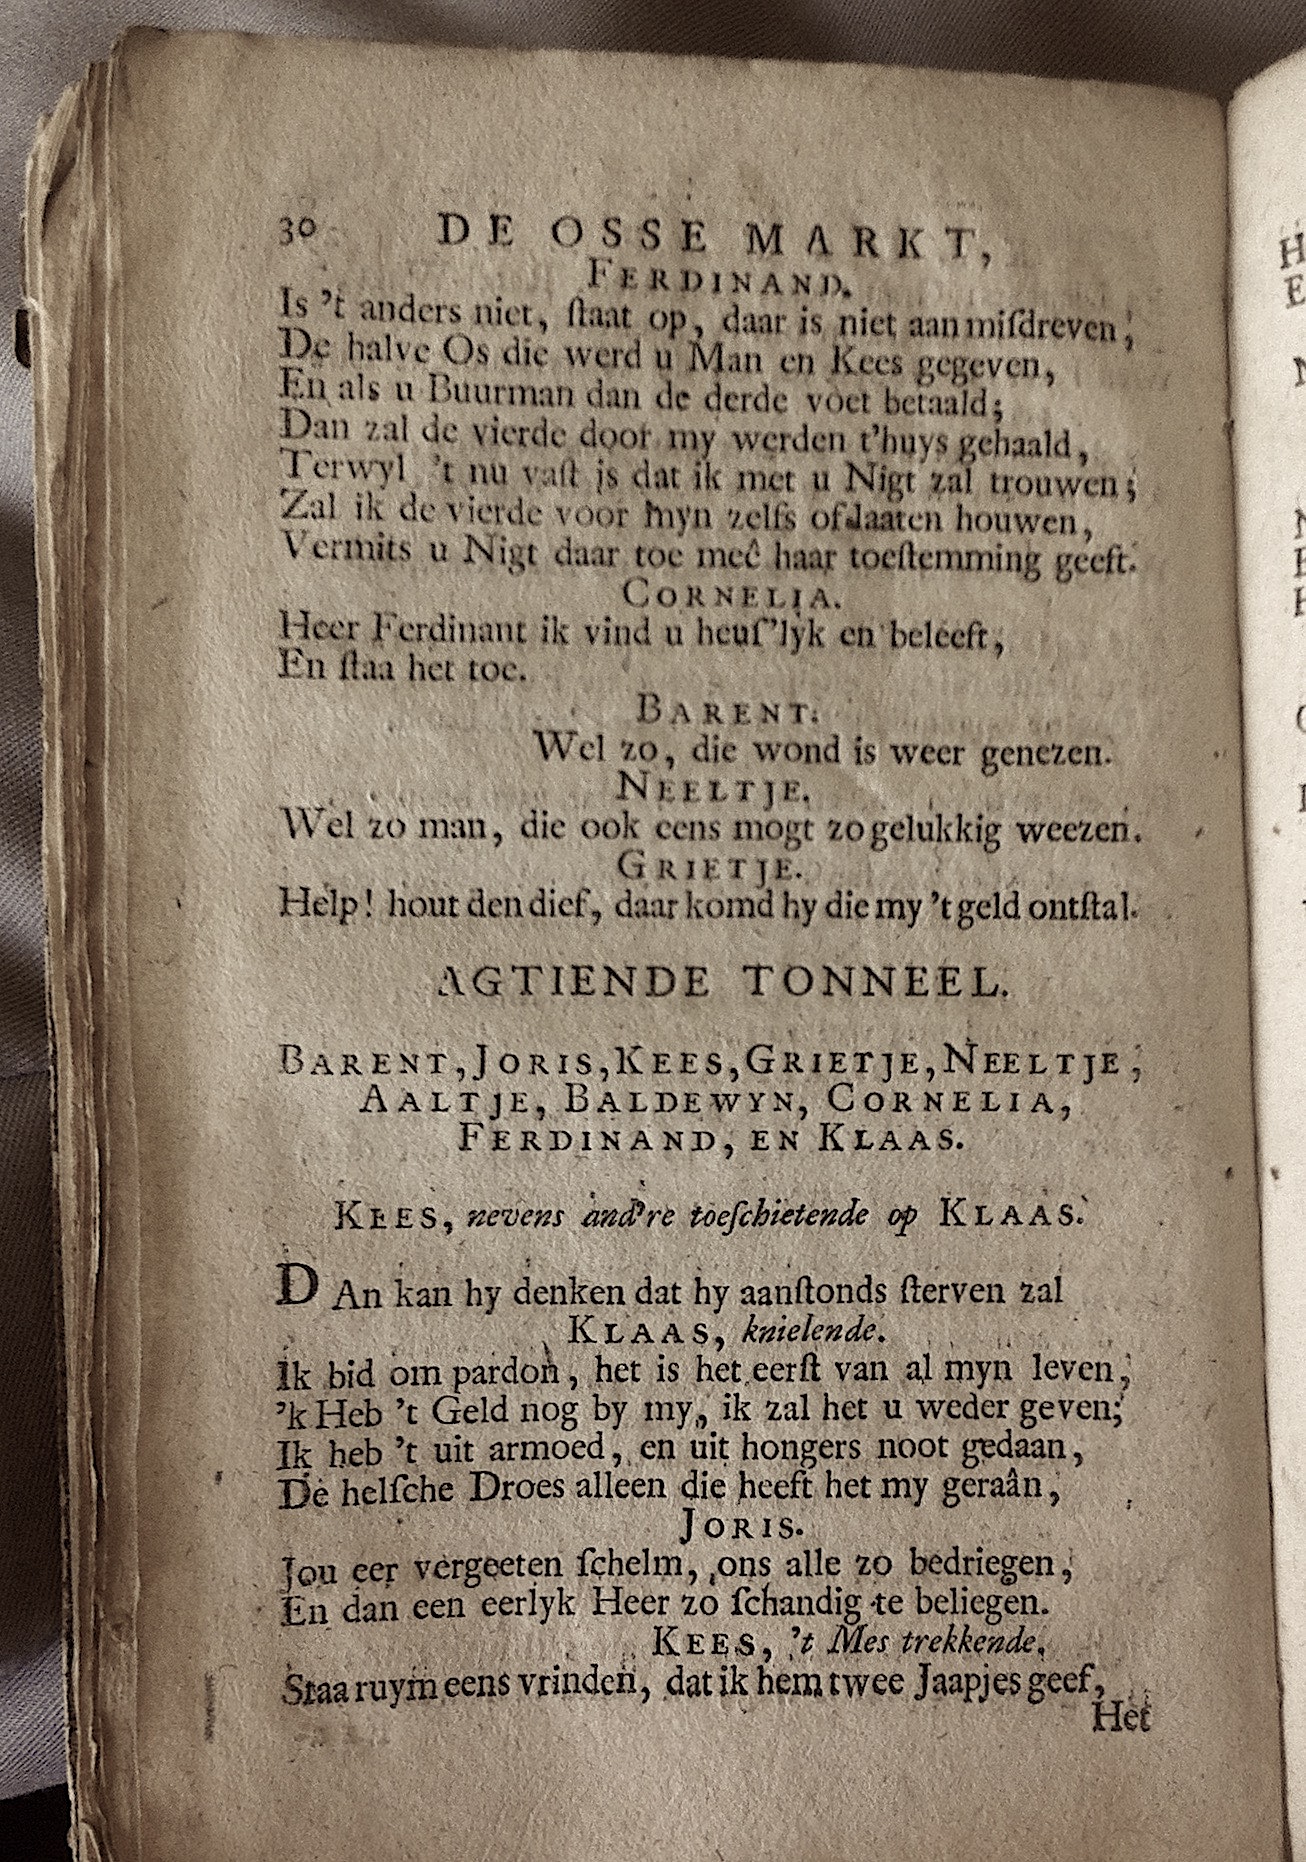 30 DE OSSE MARKT,
FERDINAND.
Is 't anders niet, ſtaat op, daar is niet aan miſdreven,
De halve Os die werd u Man en Kees gegeven,
En als u Buurman dan de derde voet betaald;
Dan zal de vierde door my werden t'huys gehaald,
Terwyl 't nu vaſt is dat ik met u Nigt zal trouwen;
Zal ik de vierde voor myn zelfs of laaten houwen,
Vermits u Nigt daar toe meê haar toeſtemming geeft.
CORNELIA.
Heer Ferdinant ik vind u heuſ'lyk en beleeft,
En ſtaa het toe.
BARENT.
Wel zo, die wond is weer genezen.
NEELTJE.
Wel zo man, die ook eens mogt zo gelukkig weezen.
GRIETJE.
Help! hout den dief, daar komd hy die my 't geld ontſtal.
AGTIENDE TONNEEL.
BARENT, JORIS, KEES, GRIETJE, NEELTJE,
AALTJE, BALDEWYN, CORNELIA,
FERDINAND, EN KLAAS.
KEES, nevens and're toeſchietende op KLAAS.
DAn kan hy denken dat hy aanſtonds ſterven zal
KLAAS, knielende.
Ik bid om pardon, het is het eerſt van al myn leven,
'k Heb 't Geld nog by my, ik zal het u weder geven;
Ik heb 't uit armoed, en uit hongers noot gedaan,
De helſche Droes alleen die heeft het my geraân,
JORIS.
Jou eer vergeeten ſchelm, ons alle zo bedriegen,
En dan een eerlyk Heer zo ſchandig te beliegen.
KEES, 't Mes trekkende.
Staa ruym eens vrinden, dat ik hem twee Jaapjes geef,
Het